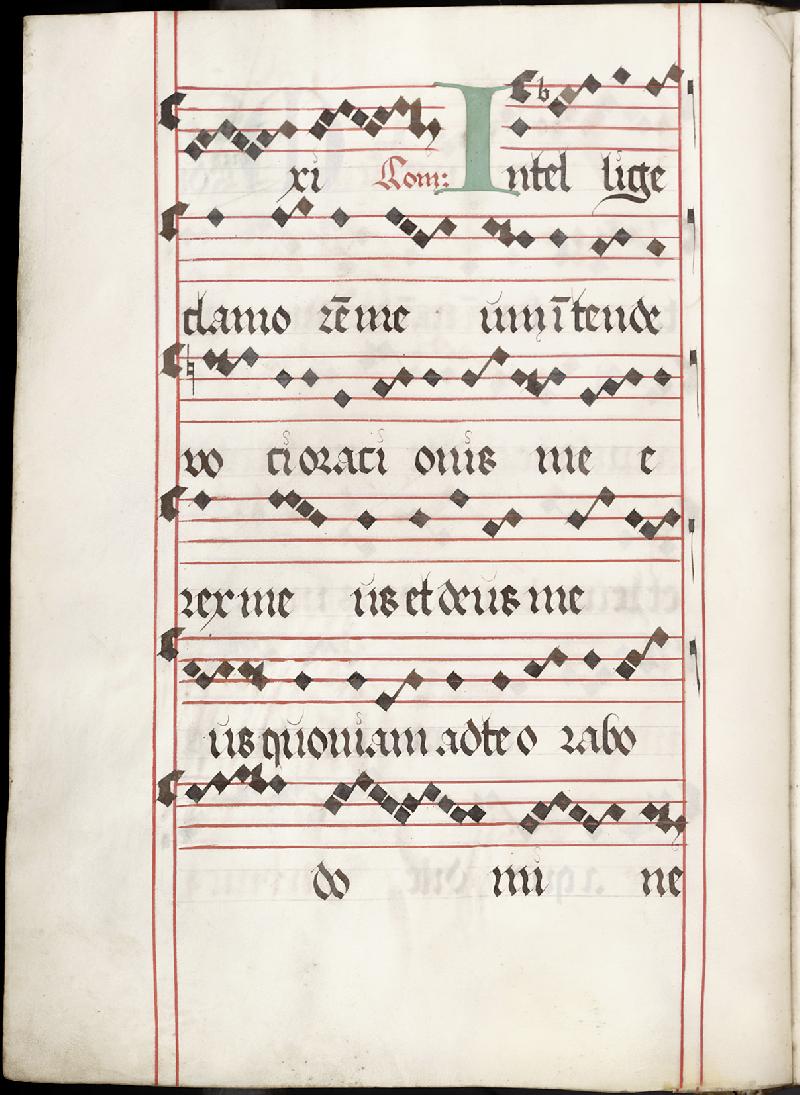 xi Com: Intel lige
clamo rē me um ī tende
vo ci orati onis me e
rex me us et deus me
us quoniam ad te o rabo
do mi ne